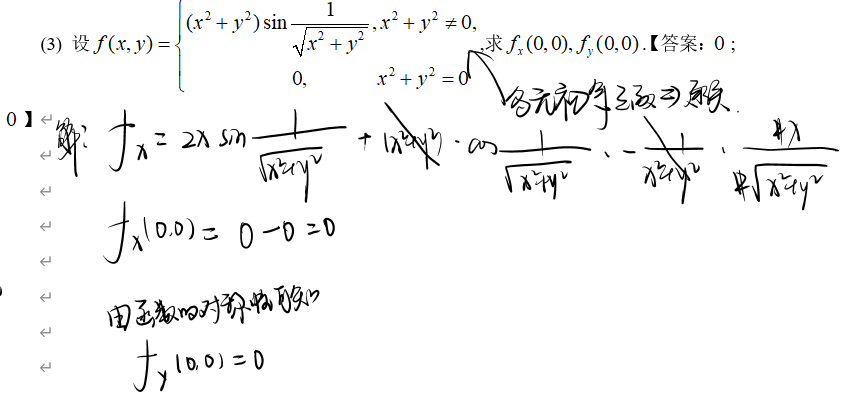 (3) 设 f(x,y) = { (x² + y²) sin 1/√(x² + y²), x² + y² ≠ 0,
0, x² + y² = 0 , 求 f_x(0,0), f_y(0,0).【答案：0；
0】
多元初等函数⇒
解: f_x = 2x sin 1/√(x²+y²) + (x²+y²) · cos 1/√(x²+y²) · - 1/(x²+y²) · 2x/2√(x²+y²)
f_x(0,0) = 0 - 0 = 0
由函数的对称性可知
f_y(0,0) = 0